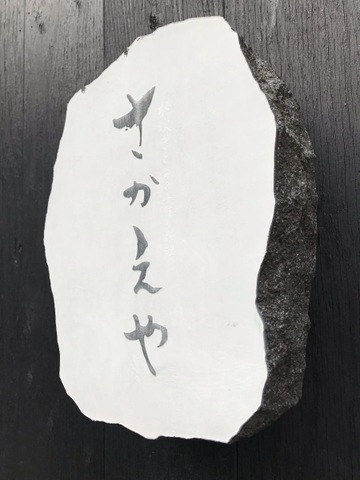 さかえや